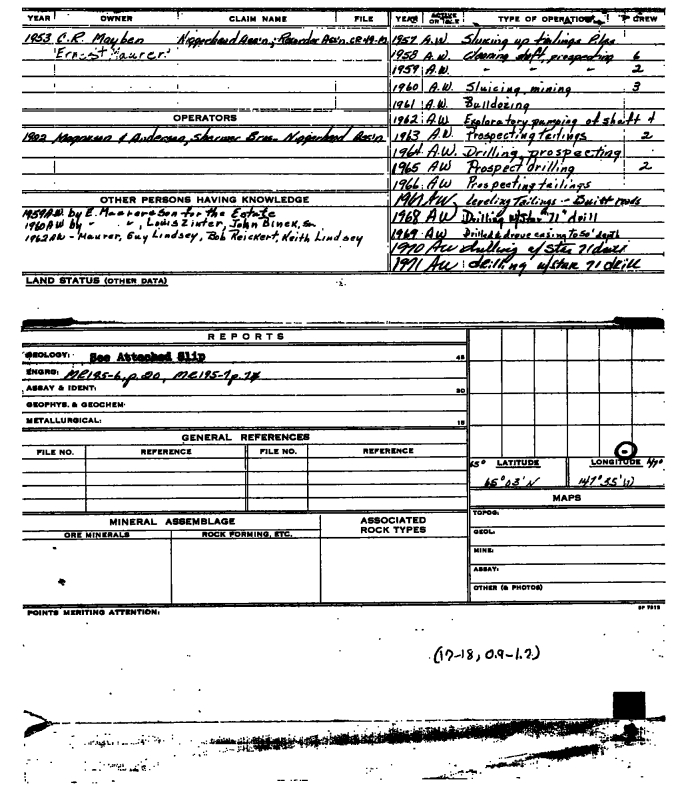 YEAR OWNER CLAIM NAME FILE YEAR ACTIVE OR IDLE TYPE OF OPERATION CREW
1953 C.R. Mayben Niggerhead Ass'n; Recorder
Ernest Maurer
1957 A.W. Sluicing up tailings Piles
1958 A.W. Cleaning shaft, prospecting 6
1959 A.W. " " 2
1960 A.W. Sluicing, mining 3
1961 A.W. Bulldozing
1962 A.W. Exploratory pumping of shaft 4
1963 A.W. Prospecting tailings 2
1964 A.W. Drilling, prospecting
1965 A.W. Prospect drilling 2
1966 A.W. Prospecting tailings
1967 A.W. Leveling tailings - Built roads
1968 A.W. Drilling w/star 71 drill
1969 A.W. Drilled & drove casing to 50' depth
1970 A.W. drilling w/star 71 drill
1971 A.W. drilling w/star 71 drill
OPERATORS
1902 Magnuson & Anderson, Niggerhead Ass'n
OTHER PERSONS HAVING KNOWLEDGE
1959 A.W. by E. for the Estate
1960 A.W. by " " , Louis Zinter, John Binek, Sr.
1962 A.W. - Maurer, Guy Lindsey, Bob Reickert, Keith Lindsey
LAND STATUS (OTHER DATA)
REPORTS
GEOLOGY: See Attached Slip 45
ENGRG: ME195-6, p.20, ME195-7 p.74
ASSAY & IDENT: 30
GEOPHYS. & GEOCHEM:
METALLURGICAL: 15
GENERAL REFERENCES
FILE NO. REFERENCE FILE NO. REFERENCE
65° LATITUDE LONGITUDE 147°
65°03'N 147°35'W
MAPS
TOPOG:
GEOL:
MINE:
ASSAY:
OTHER (& PHOTOS)
MINERAL ASSEMBLAGE ASSOCIATED ROCK TYPES
ORE MINERALS ROCK FORMING, ETC.
POINTS MERITING ATTENTION:
(17-18, 0.9-1.2)